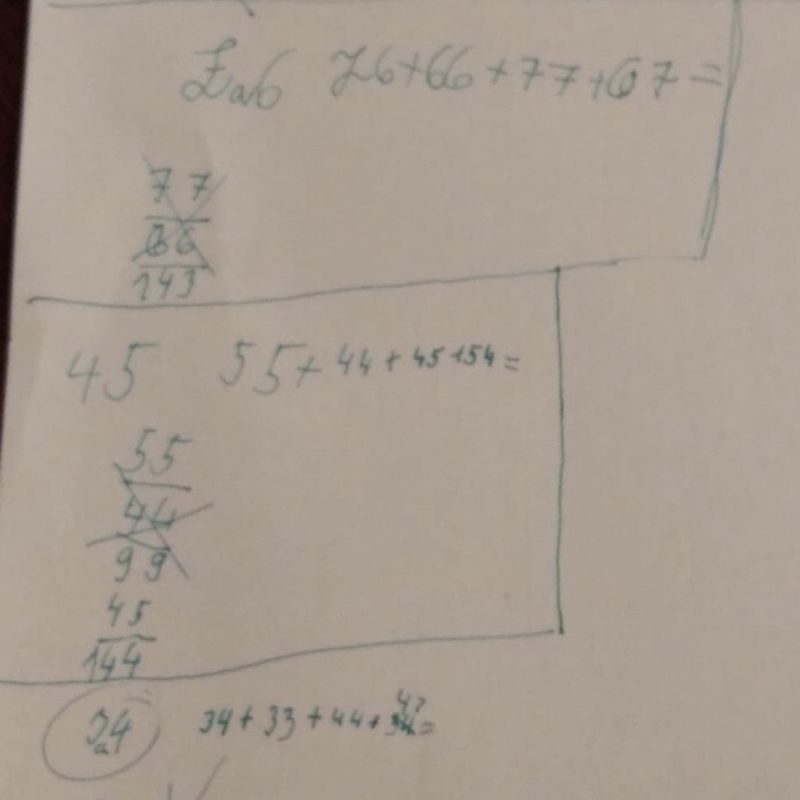 76+66+77+67=
77
66
143
45 55+44+45+54=
55
44
99
45
144
34+33+44+